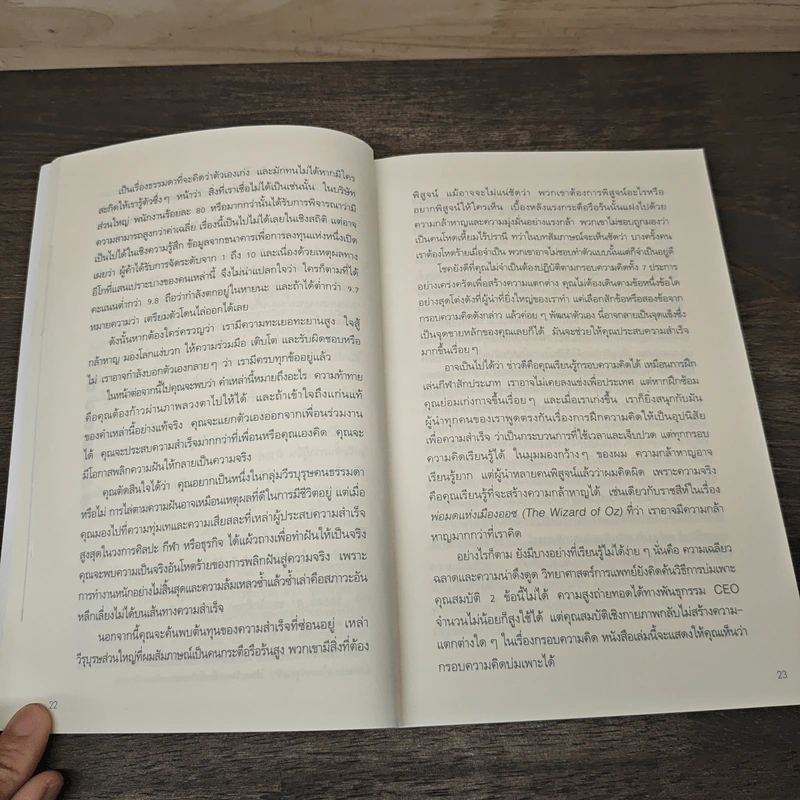 เป็นเรื่องธรรมดาที่จะคิดว่าตัวเองเก่ง และมักทนไม่ได้หากมีใคร
สะกิดให้เรารู้ตัวซึ่งๆ หน้าว่า สิ่งที่เราเชื่อไม่ได้เป็นเช่นนั้น ในบริษัท
ส่วนใหญ่ พนักงานร้อยละ 80 หรือมากกว่านั้นได้รับการพิจารณาว่ามี
ความสามารถสูงกว่าค่าเฉลี่ย เรื่องนี้เป็นไปไม่ได้เลยในเชิงสถิติ แต่อาจ
เป็นไปได้ในเชิงความรู้สึก ข้อมูลจากธนาคารเพื่อการลงทุนแห่งหนึ่งเปิด
เผยว่า ผู้ค้าได้รับการจัดระดับจาก 1 ถึง 10 และเนื่องด้วยเหตุผลทาง
อีโก้ที่แสนเปราะบางของคนเหล่านี้ จึงไม่น่าแปลกใจว่า ใครก็ตามที่ได้
คะแนนต่ำกว่า 9.8 ถือว่ากำลังตกอยู่ในหายนะ และถ้าได้ต่ำกว่า 9.7
หมายความว่า เตรียมตัวโดนไล่ออกได้เลย
ดังนั้นหากต้องใคร่ครวญว่า เรามีความทะเยอทะยานสูง ใจสู้
กล้าหาญ มองโลกแง่บวก ให้ความร่วมมือ เติบโต และรับผิดชอบหรือ
ไม่ เราอาจกำลังบอกตัวเองกลายๆ ว่า เรามีครบทุกข้ออยู่แล้ว
ในหน้าต่อจากนี้ไปคุณจะพบว่า คำเหล่านี้หมายถึงอะไร ความท้าทาย
คือคุณต้องก้าวผ่านภาพลวงตาไปให้ได้ และถ้าเข้าใจถึงแก่นแท้
ของคำเหล่านี้อย่างแท้จริง คุณจะแยกตัวเองออกจากเพื่อนร่วมงาน
ได้ คุณจะประสบความสำเร็จมากกว่าที่เพื่อนหรือคุณเองคิด คุณจะ
มีโอกาสพลิกความฝันให้กลายเป็นความจริง
คุณตัดสินใจได้ว่า คุณอยากเป็นหนึ่งในกลุ่มวีรบุรุษคนธรรมดา
หรือไม่ การไล่ตามความฝันอาจเหมือนเหตุผลที่ดีในการมีชีวิตอยู่ แต่เมื่อ
คุณมองไปที่ความทุ่มเทและความเสียสละที่เหล่าผู้ประสบความสำเร็จ
สูงสุดในวงการศิลปะ กีฬา หรือธุรกิจ ได้แผ้วถางเพื่อทำฝันให้เป็นจริง
คุณจะพบความเป็นจริงอันโหดร้ายของการพลิกฝันสู่ความจริง เพราะ
การทำงานหนักอย่างไม่สิ้นสุดและความล้มเหลวซ้ำแล้วซ้ำเล่าคือสภาวะอัน
หลีกเลี่ยงไม่ได้บนเส้นทางความสำเร็จ
นอกจากนี้คุณจะค้นพบต้นทุนของความสำเร็จที่ซ่อนอยู่ เหล่า
วีรบุรุษส่วนใหญ่ที่ผมสัมภาษณ์เป็นคนกระตือรือร้นสูง พวกเขามีสิ่งที่ต้อง
22
พิสูจน์ แม้อาจจะไม่แน่ชัดว่า พวกเขาต้องการพิสูจน์อะไรหรือ
อยากพิสูจน์ให้ใครเห็น เบื้องหลังแรงกระตือรือร้นนั้นแฝงไปด้วย
ความกล้าหาญและความมุ่งมั่นอย่างแรงกล้า พวกเขาไม่ชอบถูกมองว่า
เป็นคนโหดเหี้ยมไร้ปรานี ทว่าในบทสัมภาษณ์จะเห็นชัดว่า บางครั้งคน
เราต้องโหดร้ายเมื่อจำเป็น พวกเขาอาจไม่ชอบทำตัวแบบนั้นแต่ก็จำเป็นอยู่ดี
โชคยังดีที่คุณไม่จำเป็นต้องปฏิบัติตามกรอบความคิดทั้ง 7 ประการ
อย่างเคร่งครัดเพื่อสร้างความแตกต่าง คุณไม่ต้องเดินตามข้อหนึ่งข้อใด
อย่างสุดโต่งดังที่ผู้นำที่ยิ่งใหญ่ของเราทำ แค่เลือกสักข้อหรือสองข้อจาก
กรอบความคิดดังกล่าว แล้วค่อยๆ พัฒนาตัวเอง นี่อาจกลายเป็นจุดแข็งซึ่ง
เป็นจุดขายหลักของคุณเลยก็ได้ มันจะช่วยให้คุณประสบความสำเร็จ
มากขึ้นเรื่อยๆ
อาจเป็นไปได้ว่า ข่าวดีคือคุณเรียนรู้กรอบความคิดได้ เหมือนการฝึก
เล่นกีฬาสักประเภท เราอาจไม่เคยลงแข่งเพื่อประเทศ แต่หากฝึกซ้อม
คุณย่อมเก่งกาจขึ้นเรื่อยๆ และเมื่อเราเก่งขึ้น เราก็ยิ่งสนุกกับมัน
ผู้นำทุกคนของเราพูดตรงกันเรื่องการฝึกความคิดให้เป็นอุปนิสัย
เพื่อความสำเร็จ ว่าเป็นกระบวนการที่ใช้เวลาและเจ็บปวด แต่ทุกกรอบ
ความคิดเรียนรู้ได้ ในมุมมองกว้างๆ ของผม ความกล้าหาญอาจ
เรียนรู้ยาก แต่ผู้นำหลายคนพิสูจน์แล้วว่าผมคิดผิด เพราะความจริง
คือคุณเรียนรู้ที่จะสร้างความกล้าหาญได้ เช่นเดียวกับราชสีห์ในเรื่อง
พ่อมดแห่งเมืองออซ (The Wizard of Oz) ที่ว่า เราอาจมีความกล้า
หาญมากกว่าที่เราคิด
อย่างไรก็ตาม ยังมีบางอย่างที่เรียนรู้ไม่ได้ง่ายๆ นั่นคือ ความเฉลียว
ฉลาดและความน่าดึงดูด วิทยาศาสตร์การแพทย์ยังคิดค้นวิธีการบ่มเพาะ
คุณสมบัติ 2 ข้อนี้ไม่ได้ ความสูงถ่ายทอดได้ทางพันธุกรรม CEO
จำนวนไม่น้อยก็สูงใช้ได้ แต่คุณสมบัติเชิงกายภาพกลับไม่สร้างความ-
แตกต่างใดๆ ในเรื่องกรอบความคิด หนังสือเล่มนี้จะแสดงให้คุณเห็นว่า
กรอบความคิดบ่มเพาะได้
23